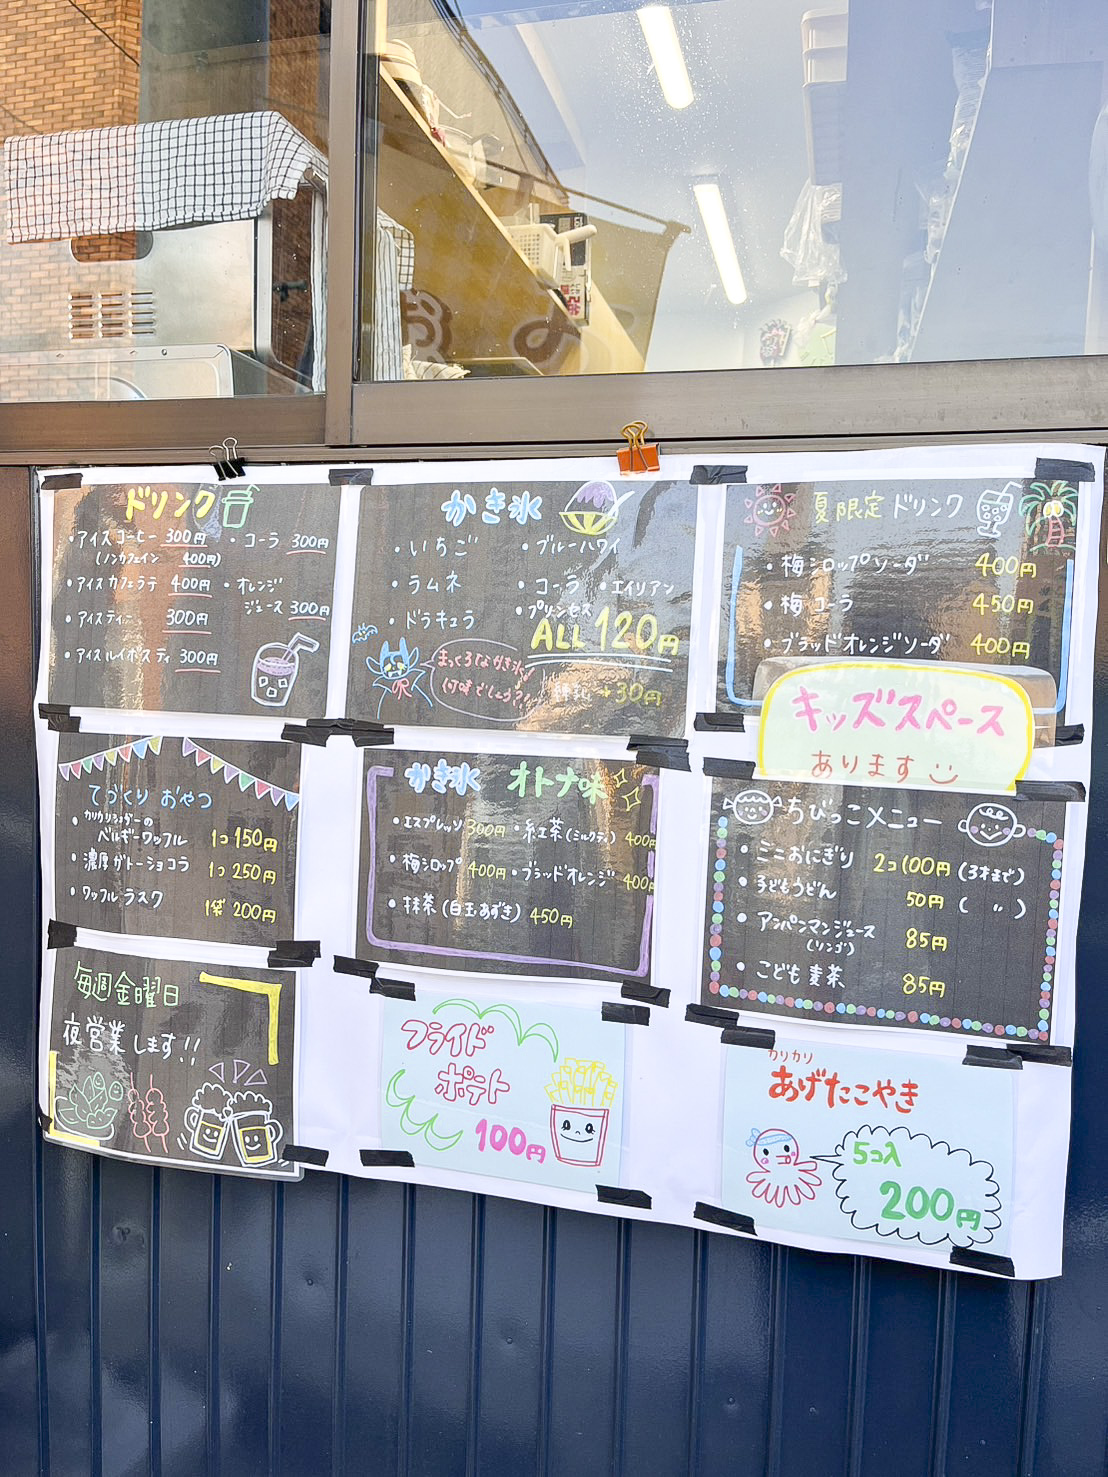 ドリンク
・アイスコーヒー 300円
(ノンカフェイン 400円)
・アイスカフェラテ 400円
・アイスティー 300円
・アイスルイボスティ 300円
・コーラ 300円
・オレンジ
ジュース 300円
かき氷
・いちご
・ブルーハワイ
・ラムネ
・コーラ ・エイリアン
・ドラキュラ
・プリンセス
ALL 120円
まっくろなかき氷!
何味でしょう?!
+30円
夏限定 ドリンク
・梅シロップソーダ 400円
・梅コーラ 450円
・ブラッドオレンジソーダ 400円
キッズスペース
あります
てづくり おやつ
・カリカリシュガーの
ベルギーワッフル 1コ 150円
・濃厚ガトーショコラ 1コ 250円
・ワッフルラスク
1袋 200円
かき氷 オトナ味
・エスプレッソ 300円 ・紅茶(ミルクティ) 400円
・梅シロップ 400円 ・ブラッドオレンジ 400円
・抹茶(白玉あずき) 450円
ちびっこメニュー
・ミニおにぎり 2コ100円 (3才まで)
・子どもうどん 50円 ( 〃 )
・アンパンマンジュース 85円
(リンゴ)
・こども麦茶 85円
毎週金曜日
夜営業します!!
フライド
ポテト
100円
カリカリ
あげたこやき
5コ入
200円